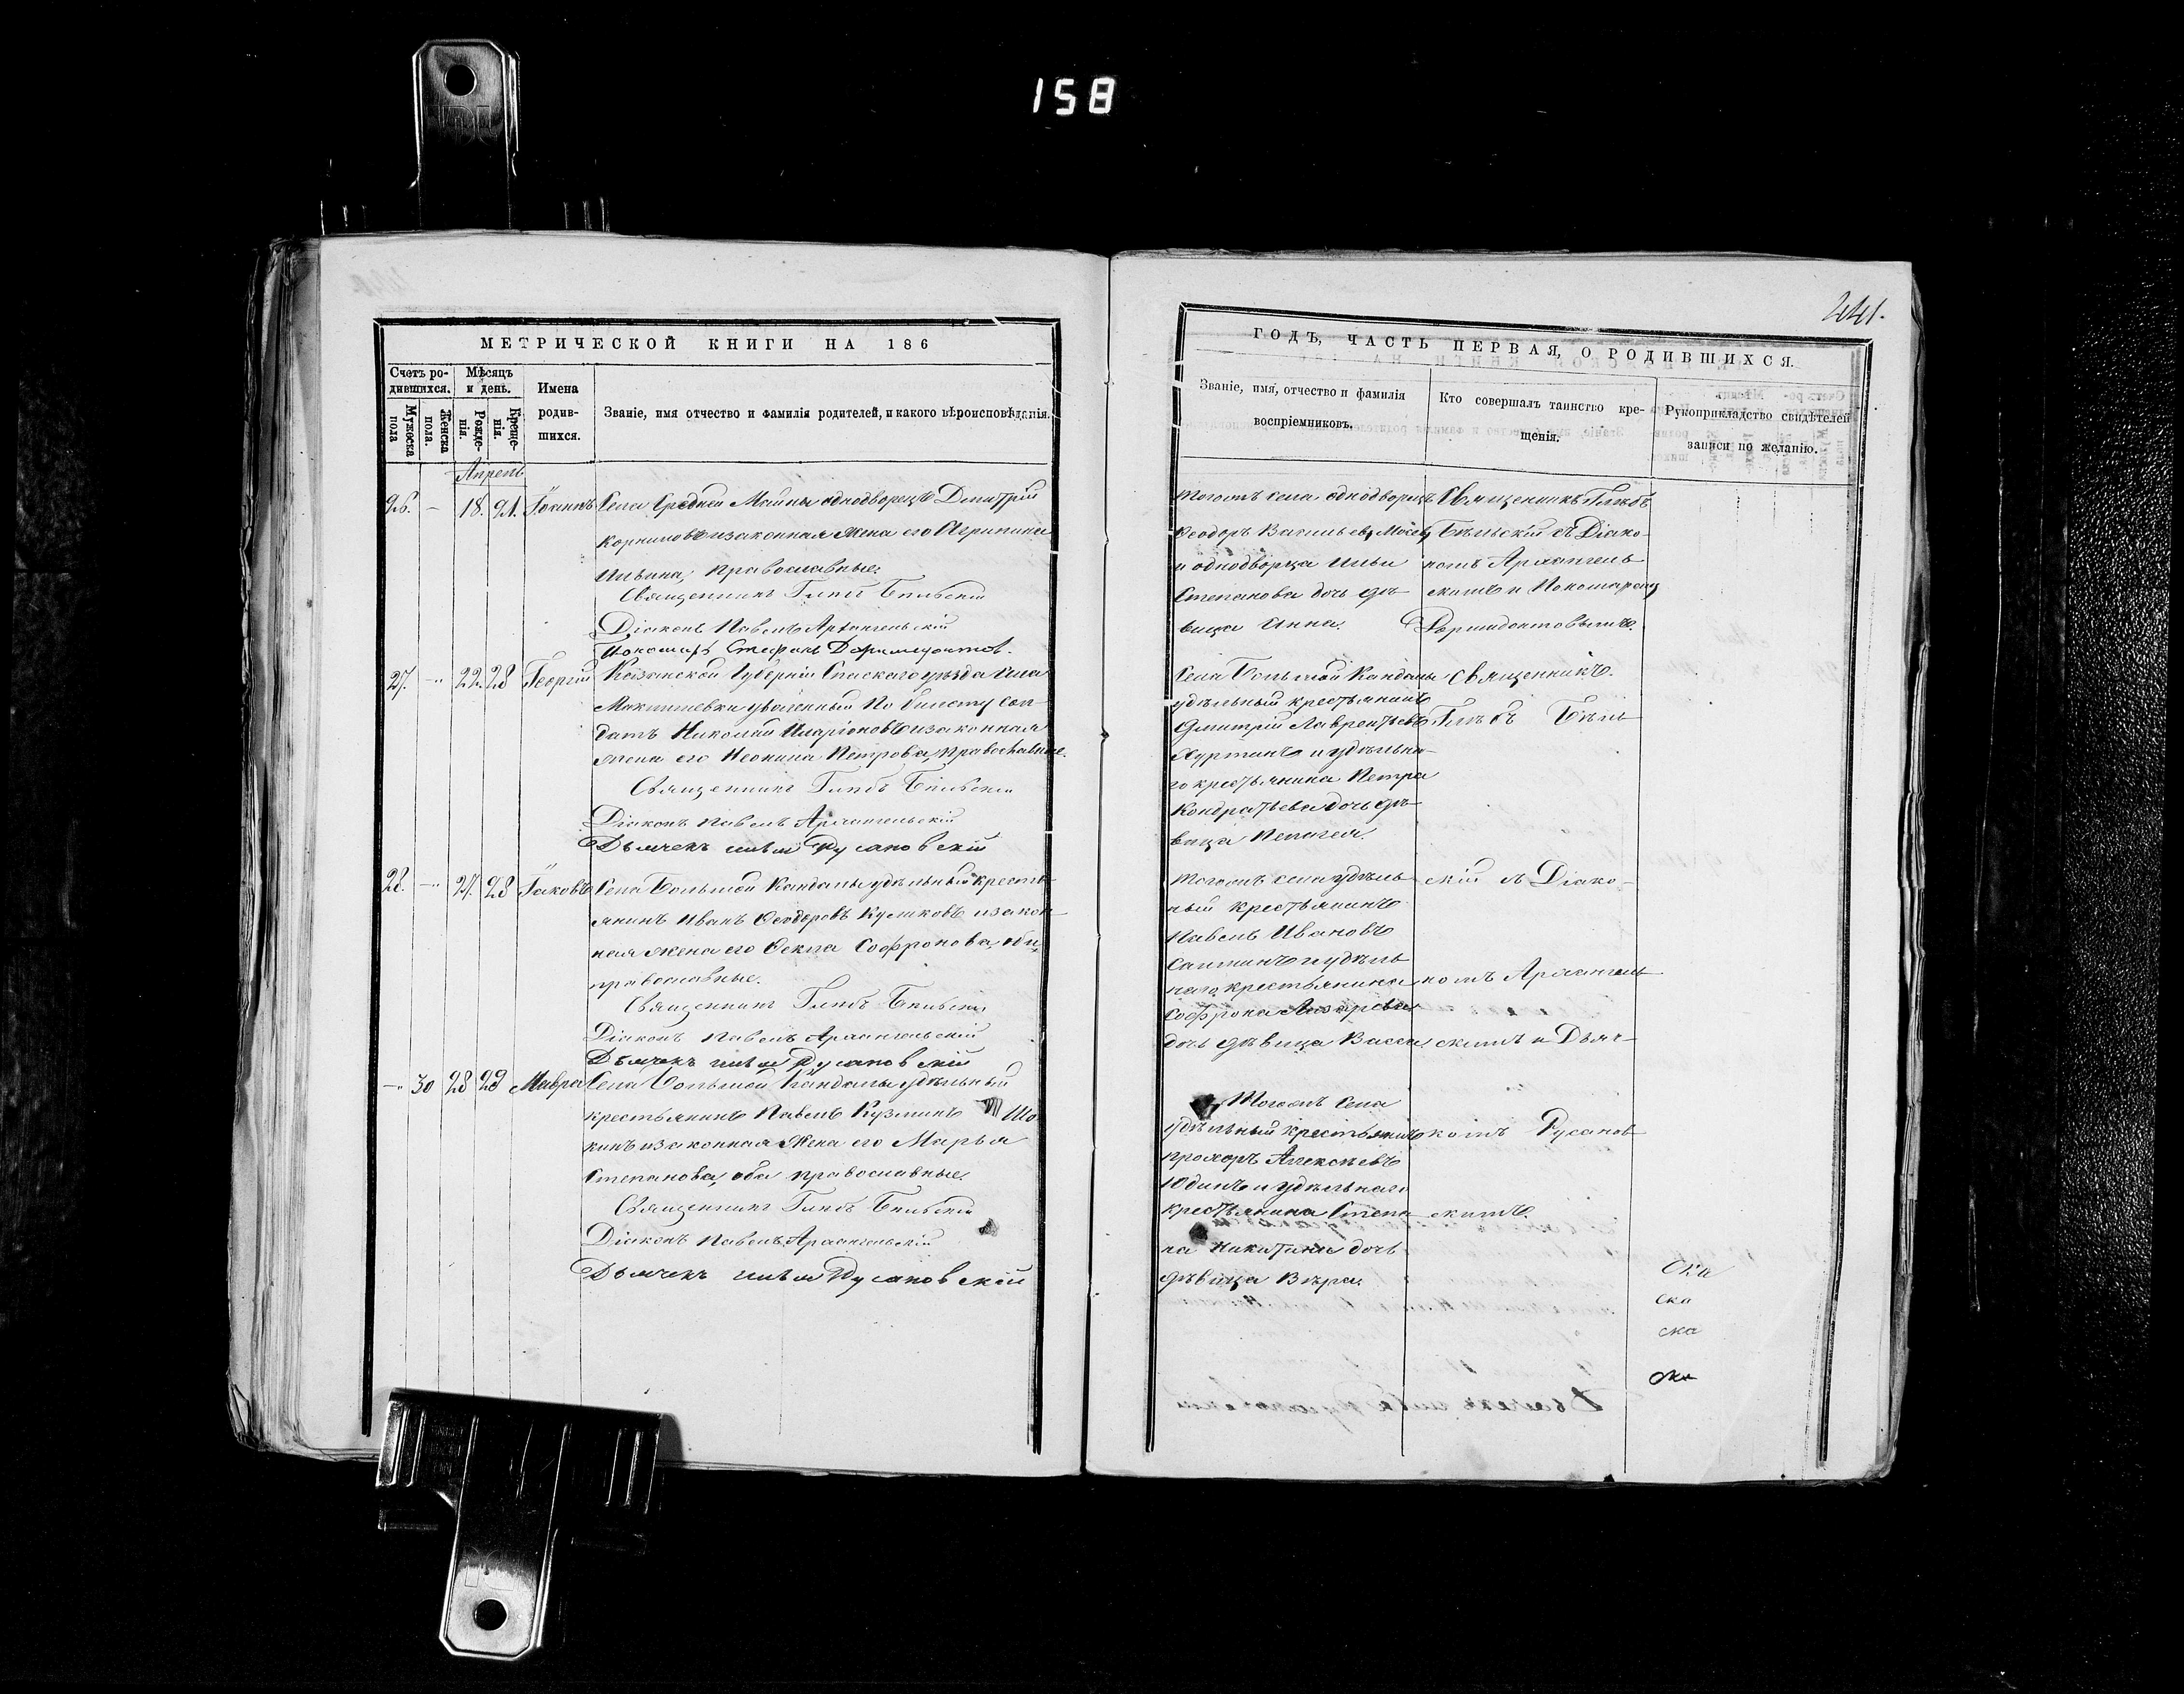 158
441.
МЕТРИЧЕСКОЙ КНИГИ НА 186
Счетъ ро-
дившихся.
Мѣсяцъ
и день.
Имена
родив-
шихся.
Званіе, имя отчество и фамилія родителей, и какого вѣроисповѣданія.
Мужеска
пола
Женска
пола.
Рожде-
нія.
Креще-
нія.
Апрель
26. — 18. 21. Іоаннъ Села Средней Майны однодворецъ Дмитрій
Корниловъ и законная жена его Агрипина
Ильина, православные.
Священникъ Глѣбъ Бѣльскій
Діаконъ Павелъ Архангельскій
Пономарь Стефанъ
27. — 22. 28 Георгій Казанской Губерніи Спаскаго уѣзда села
уволенный по билету сол-
датъ Николай Иларіоновъ и законная
жена его Неонила Петрова, православные.
Священникъ Глѣбъ Бѣльскій
Діаконъ Павелъ Архангельскій
Дьячекъ Илья Русановскій
28. — 27. 28 Іаковъ Села Большой Кандалы удѣльный кресть-
янинъ Иванъ Ѳеодоровъ Куликовъ и закон-
ная жена его Ѳекла Софронова, оба
православные.
Священникъ Глѣбъ Бѣльскій
Діаконъ Павелъ Архангельскій
Дьячекъ Илья Русановскій
— 30 28 29 Мавра Села Большой Кандалы удѣльный
крестьянинъ Павелъ Кузминъ Шо
кинъ и законная жена его Марья
Степанова, оба православные.
Священникъ Глѣбъ Бѣльскій
Діаконъ Павелъ Архангельскій
Дьячекъ Илья Русановскій
ГОДЪ, ЧАСТЬ ПЕРВАЯ, О РОДИВШИХСЯ.
Званіе, имя, отчество и фамилія
воспріемниковъ.
Кто совершалъ таинство кре-
щенія.
Рукоприкладство свидѣтелей
записи по желанію.
тогожъ села однодворецъ
Ѳеодоръ Васильевъ
и однодворца Ильи
Степанова дочь дѣ-
вица Анна.
Священникъ Глѣбъ
Бѣльскій съ Діако-
номъ Архангель
скимъ и Пономаремъ
Села Большой Кандалы
удѣльный крестьянинъ
Дмитрій Лаврентьевъ
и удѣльна-
го крестьянина Петра
Кондратьева дочь дѣ-
вица Пелагея.
Священникъ.
Глѣбъ Бѣль
тогожъ села удѣль
ный крестьянинъ
Павелъ Ивановъ
и удѣль
наго крестьянина
Софрона Лазарева
дочь дѣвица Васса
скій съ Діако-
номъ Архангель
скимъ и Дьяч-
Тогожъ села
удѣльный крестьянинъ
Прохоръ Алексѣевъ
Юдинъ и удѣльнаго
крестьянина Степа
на Никитина дочь
дѣвица Вѣра.
комъ Русанов
скимъ.